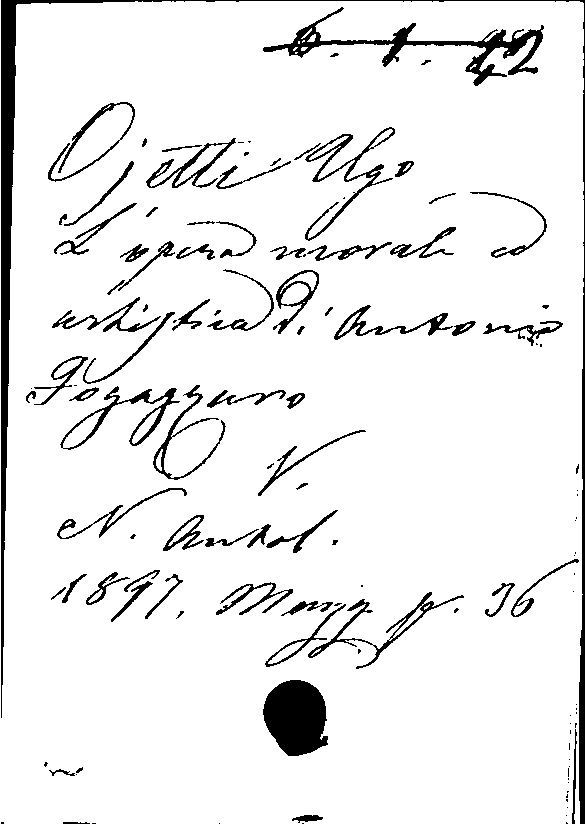 6. 1. 42
Ojetti Ugo
L'opera morale ed
artistica di Antonio
Fogazzaro
V.
N. Antol.
1897, Magg. p. 36